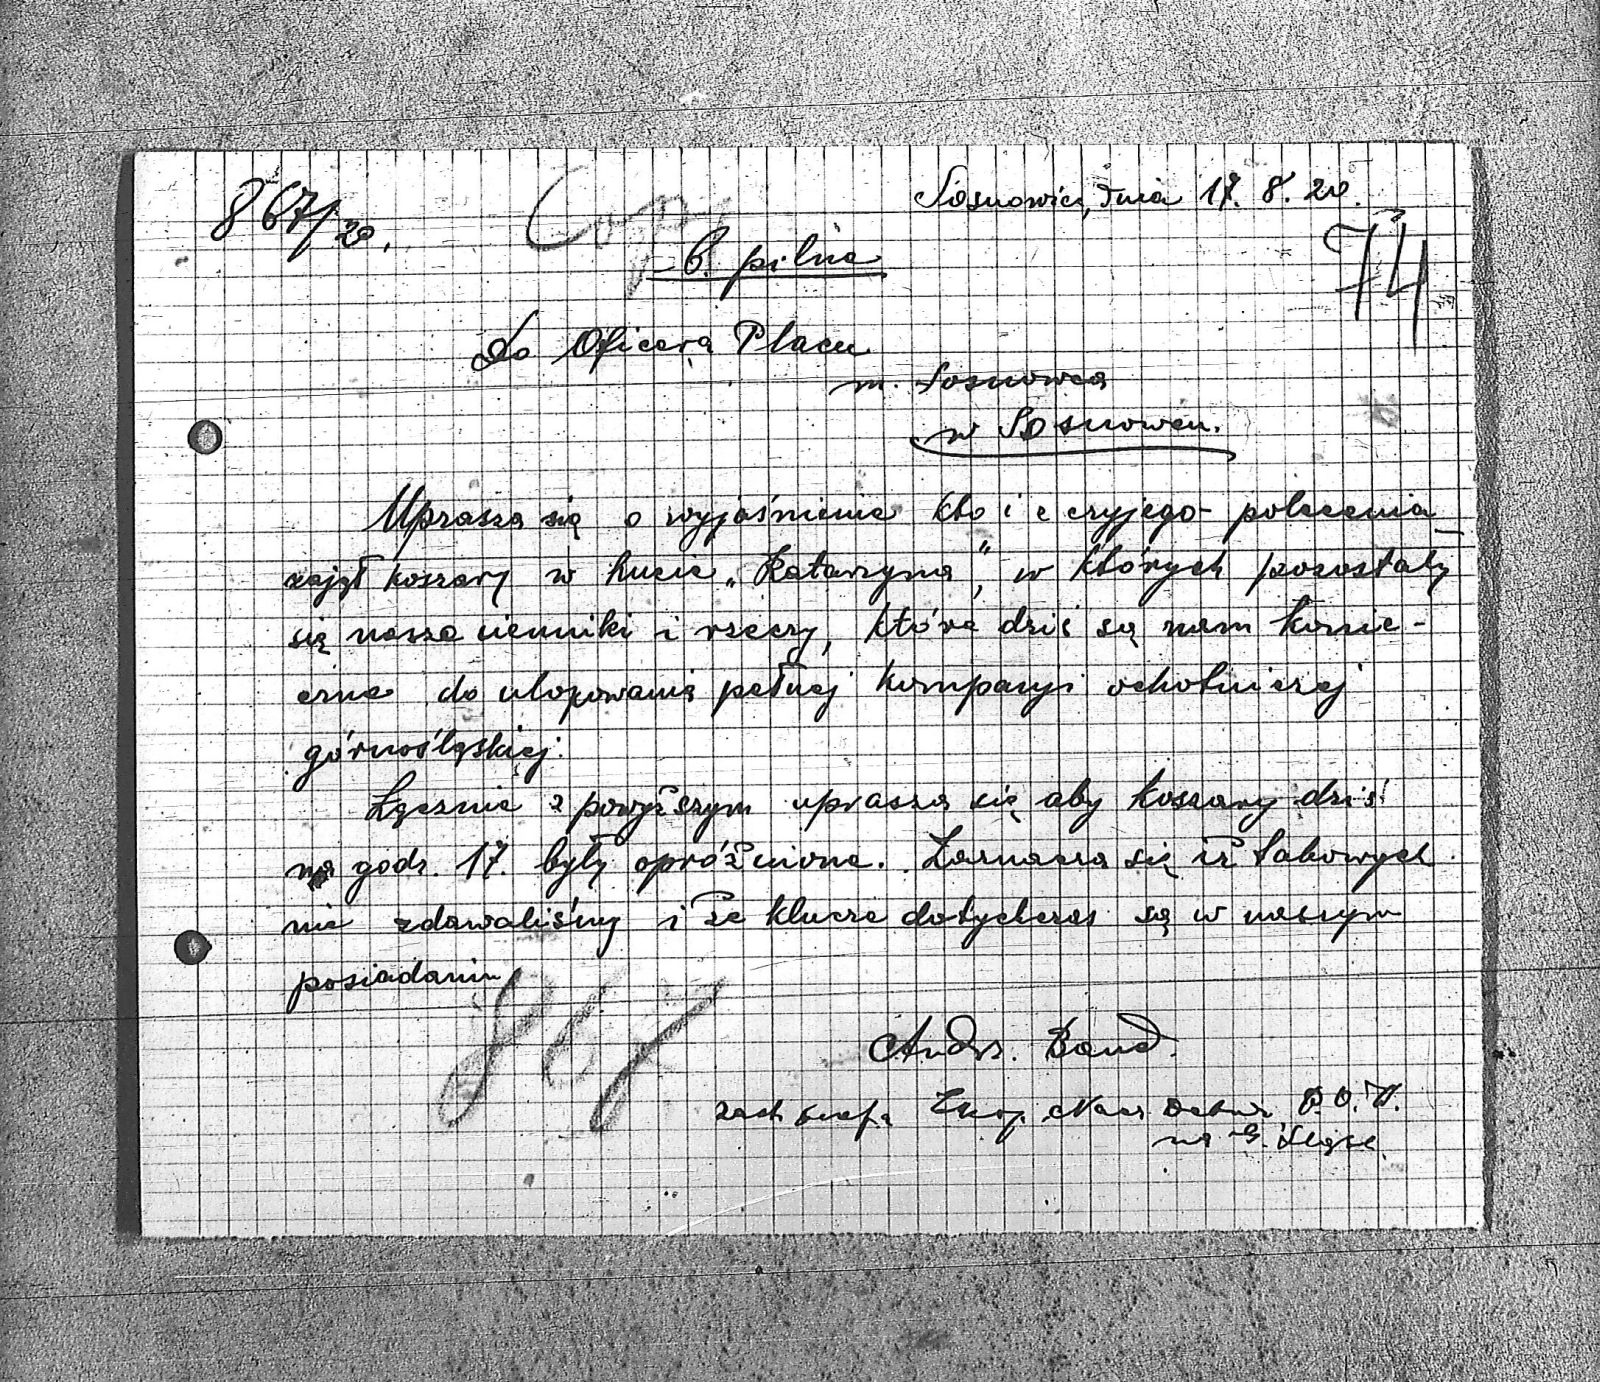 867/20.
Sosnowiec, dnia 17. 8. 20.
74
B. pilne
Do Oficera Placu
m. Sosnowca
w Sosnowcu.
Uprasza się o wyjaśnienie kto i z czyjego polecenia
zajął koszary w hucie „Katarzyna", w których pozostały
się nasze sienniki i rzeczy, które dziś są nam konie-
czne do ulokowania pełnej kompanji ochotniczej
górnośląskiej.
Łącznie z powyższym uprasza się aby koszary dziś
na godz. 17. były opróżnione. Zaznacza się iż takowych
nie zdawaliśmy i że klucze dotychczas są w naszym
posiadaniu
Andrz.
zast. szefa Nacz. P.O.W.
na G. Śląsk